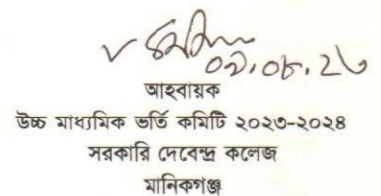 ০৯.০৮.২৩
আহবায়ক
উচ্চ মাধ্যমিক ভর্তি কমিটি ২০২৩-২০২৪
সরকারি দেবেন্দ্র কলেজ
মানিকগঞ্জ